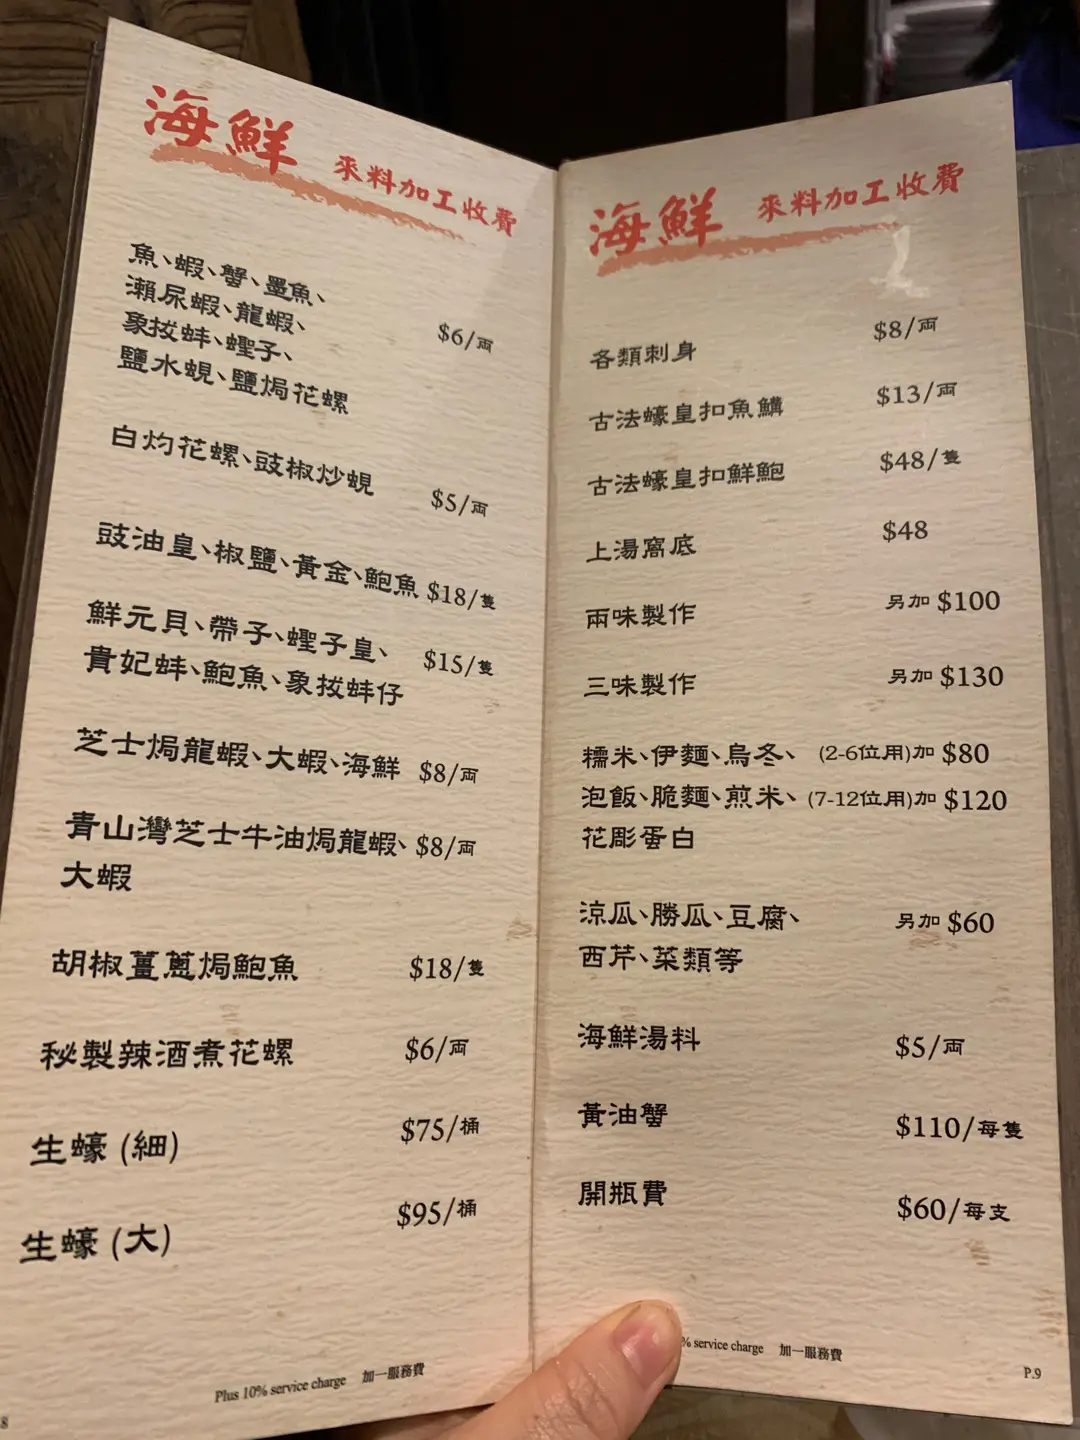 海鮮 來料加工收費
魚、蝦、蟹、墨魚、
瀨尿蝦、龍蝦、
象拔蚌、蟶子、
鹽水蜆、鹽焗花螺 $6/両
白灼花螺、豉椒炒蜆 $5/両
豉油皇、椒鹽、黃金、鮑魚 $18/隻
鮮元貝、帶子、蟶子皇、
貴妃蚌、鮑魚、象拔蚌仔 $15/隻
芝士焗龍蝦、大蝦、海鮮 $8/両
青山灣芝士牛油焗龍蝦、 $8/両
大蝦
胡椒薑蔥焗鮑魚 $18/隻
秘製辣酒煮花螺 $6/両
生蠔 (細) $75/桶
生蠔 (大) $95/桶
Plus 10% service charge 加一服務費
8
海鮮 來料加工收費
各類刺身 $8/両
古法蠔皇扣魚鱅 $13/両
古法蠔皇扣鮮鮑 $48/隻
上湯窩底 $48
兩味製作 另加 $100
三味製作 另加 $130
糯米、伊麵、烏冬、 (2-6位用)加 $80
泡飯、脆麵、煎米、 (7-12位用)加 $120
花彫蛋白
涼瓜、勝瓜、豆腐、 另加 $60
西芹、菜類等
海鮮湯料 $5/両
黃油蟹 $110/每隻
開瓶費 $60/每支
% service charge 加一服務費
P.9